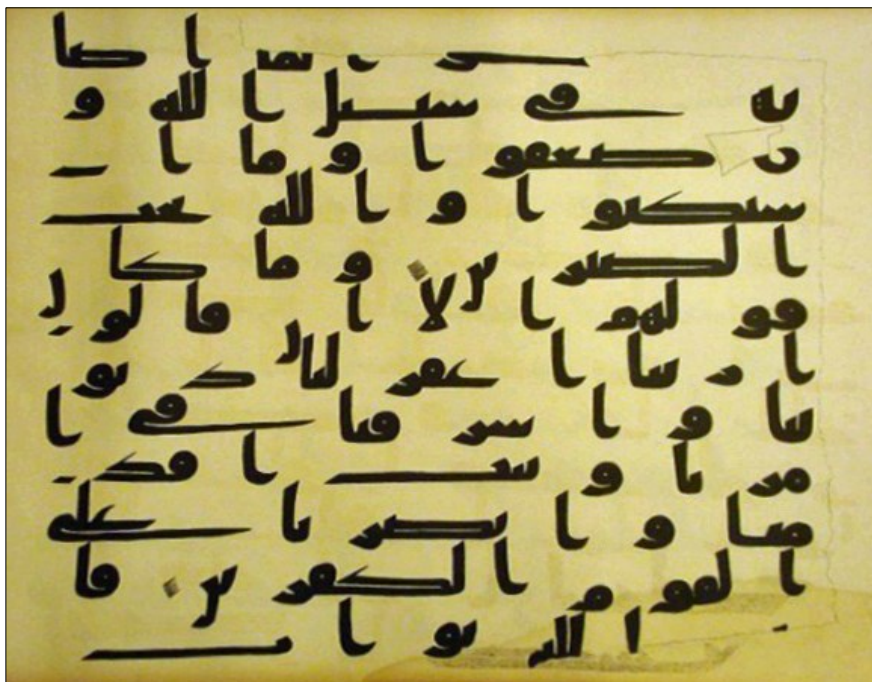 لما ا صا
بهم في سبيل الله و
ما ضعفوا و ما ا
ستكنوا و الله يحب
الصبرين و ما كا
قولهم الا ا قالوا ر
ا نا اغفر لنا ذنو
نا و اسرفنا في ا
مرنا و ثبت اقد
منا و انصرنا على
القوم الكفرين فا
الله ثوا